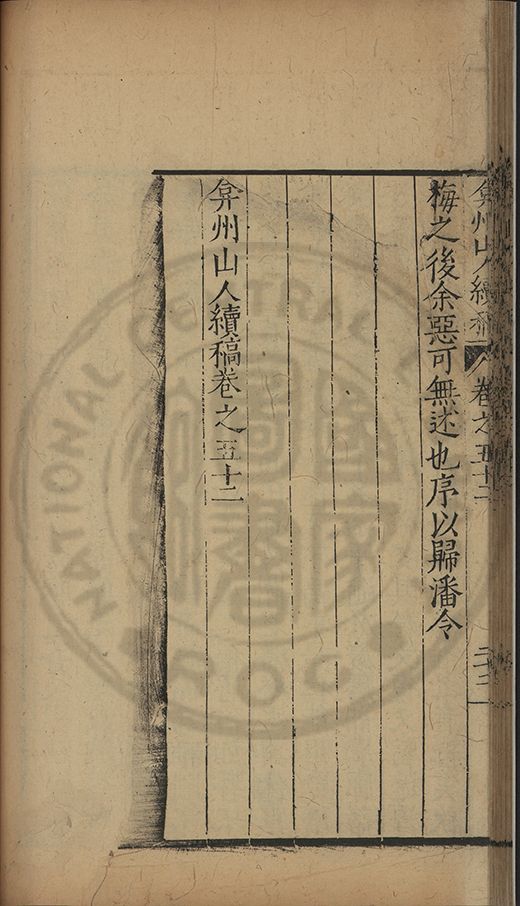 弇州山人續稿 卷之五十二
梅之後余惡可無述也序以歸潘令
弇州山人續稿卷之五十二